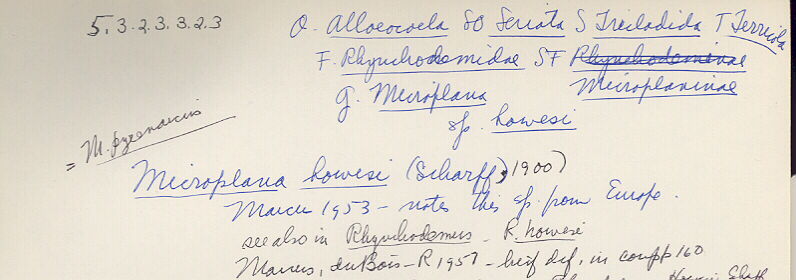 5.3.2.3.3.2.3 O. Alloeocoela SO Seriata S Tricladida T Terricola
F. Rhynchodemidae SF Rhynchodeminae
G. Microplana Microplaninae
sp. howesi
= M. pyrenaicus
Microplana howesi (Scharff, 1900)
Marcus 1953 - notes this sp. from Europe.
see also in Rhynchodemus - R. howesi
Marcus, du Bois-R 1957 - brief def. in couplet 160